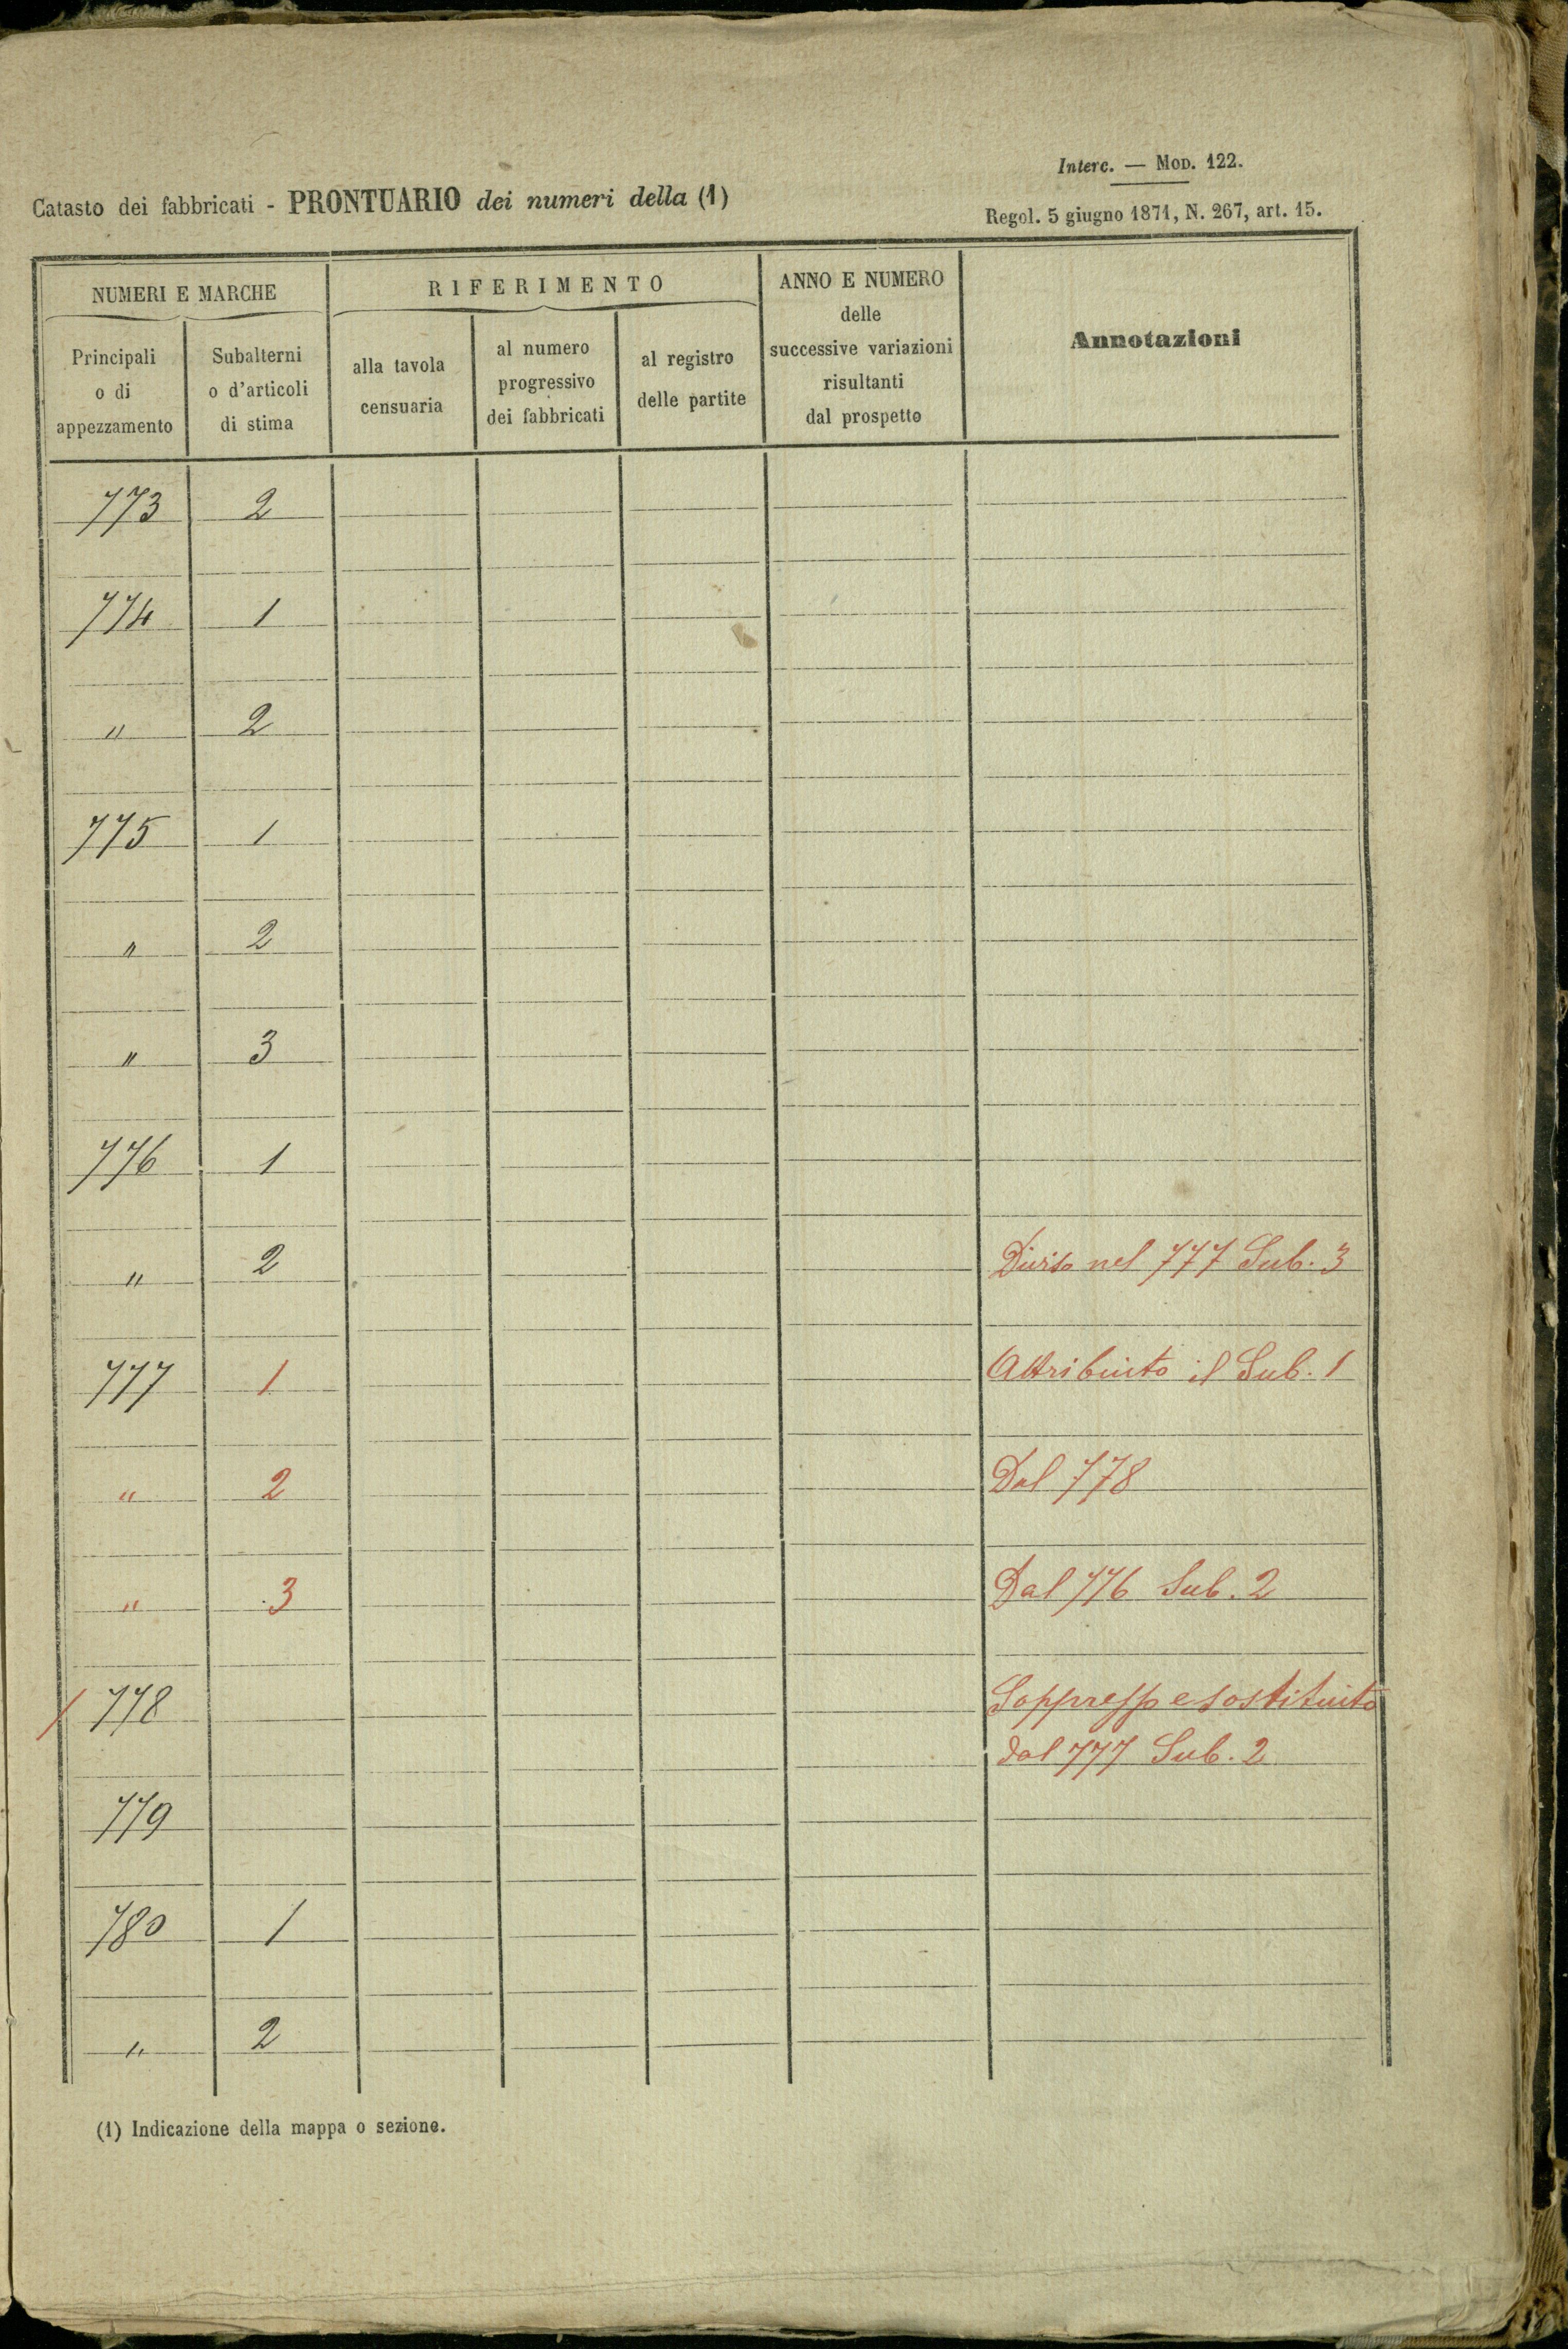 Interc. — Mod. 122.
Catasto dei fabbricati - PRONTUARIO dei numeri della (1)
Regol. 5 giugno 1871, N. 267, art. 15.
NUMERI E MARCHE
Principali
o di
appezzamento
Subalterni
o d'articoli
di stima
RIFERIMENTO
alla tavola
censuaria
al numero
progressivo
dei fabbricati
al registro
delle partite
ANNO E NUMERO
delle
successive variazioni
risultanti
dal prospetto
Annotazioni
773 2
774 1
" 2
775 1
" 2
" 3
776 1
" 2 Diviso nel 777 Sub. 3
777 1 Attribuito il Sub. 1
" 2 Dal 778
" 3 Dal 776 Sub. 2
/ 778 Soppresso e sostituito
dal 777 Sub. 2
779
780 1
" 2
(1) Indicazione della mappa o sezione.